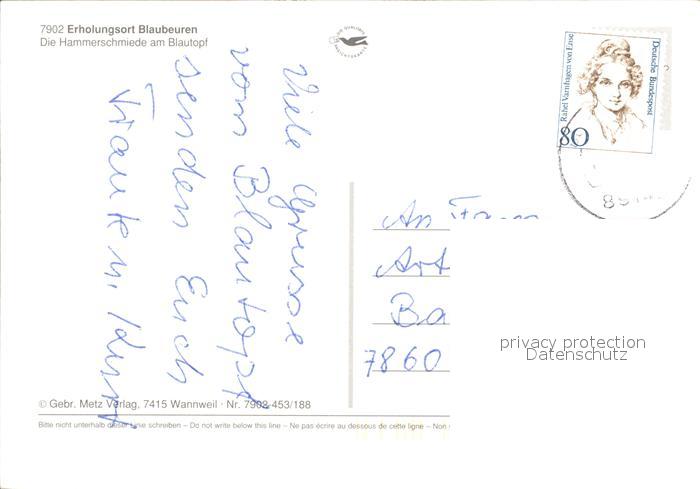 7902 Erholungsort Blaubeuren
Die Hammerschmiede am Blautopf
Viele Grüsse
vom Blautopf
senden Euch
Frank u. Kurt
Rahel Varnhagen von Ense
Deutsche Bundespost
80
89
An Frau
Art
Ba
7860
privacy protection
Datenschutz
© Gebr. Metz Verlag, 7415 Wannweil · Nr. 7902-453/188
Bitte nicht unterhalb dieser Linie schreiben – Do not write below this line – Ne pas écrire au dessous de cette ligne – Non